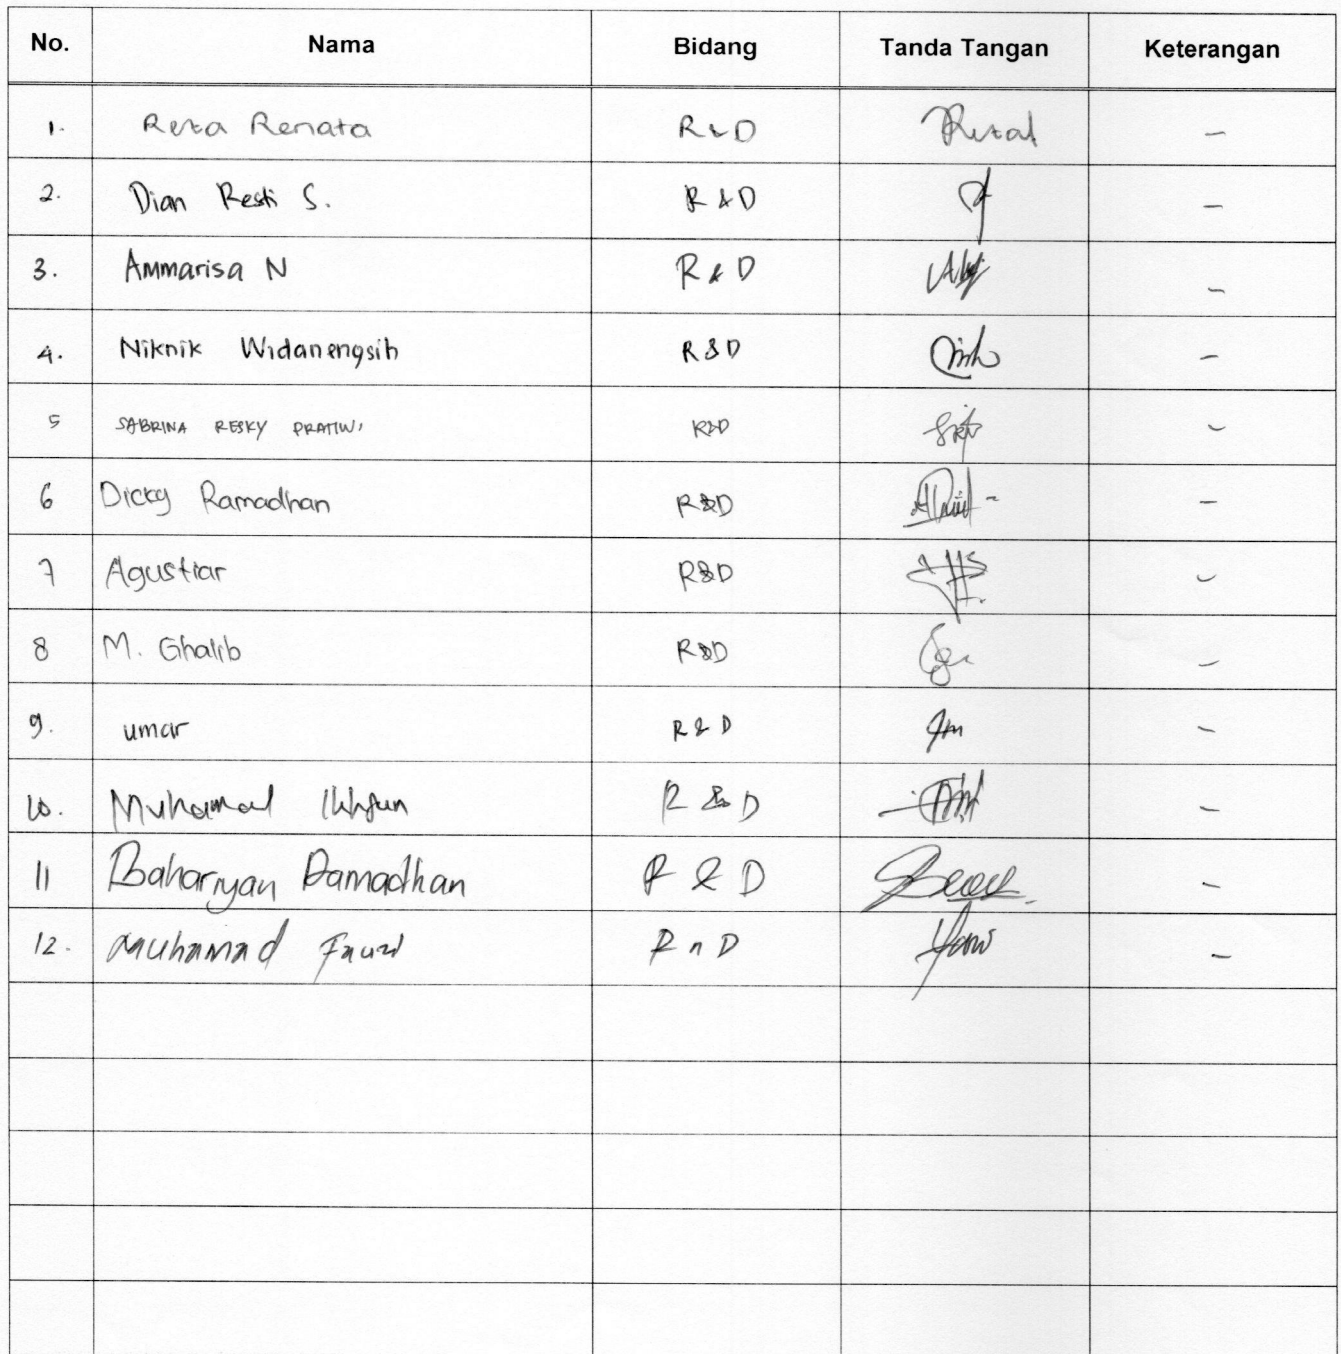 No. Nama Bidang Tanda Tangan Keterangan
1. Reza Renata R&D -
2. Dian Resti S. R & D -
3. Ammarisa N R & D -
4. Niknik Widanengsih R&D -
5 SABRINA RESKY PRATIWI R&D -
6 Dicky Ramadhan R&D -
7 Agustiar R&D -
8 M. Ghalib R&D -
9. umar R & D -
10. R & D -
11 Ramadhan R & D -
12. Muhamad Fauzi R n D -